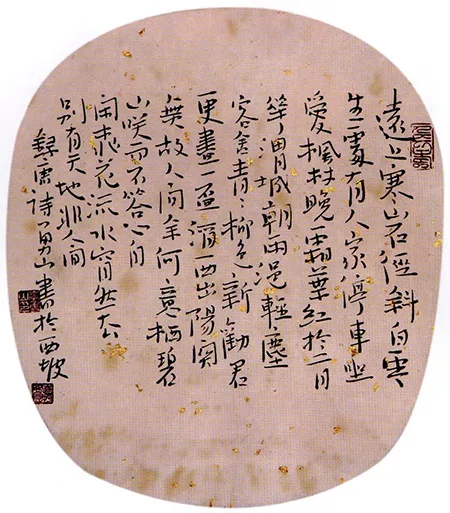 遠上寒山石徑斜白雲
生處有人家停車坐
愛楓林晚霜葉紅於二月
華渭城朝雨浥輕塵
客舍青々柳色新勸君
更盡一盃酒西出陽關
無故人問余何意栖碧
山咲而不答心自
閑桃花流水窅然去
別有天地非人間
唐詩山書於西坡